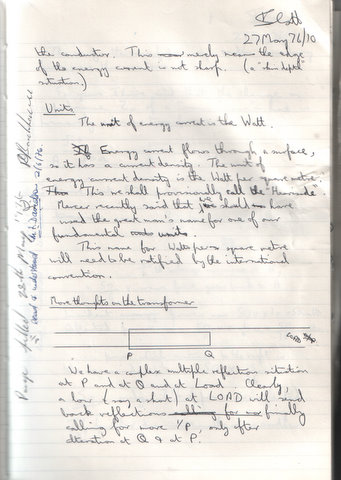 I Catt
27 May 76/10
the conductor. This merely means the edge
of the energy current is not sharp. (a "skin depth"
situation.)
Units
The unit of energy current is the Watt.
If Energy current flows through a surface,
so it has a current density. The unit of
energy current density is the Watt per square metre.
This we shall provisionally call the "Heaviside".
Mercer recently said that we should have
used the great man's name for one of our
fundamental units.
This name for Watts per square metre
will need to be ratified by the international
convention.
More thoughts on the transformer
P Q
We have a complex multiple reflection situation
at P and at Q and at Load. Clearly,
a low (say a short) at LOAD will send
back reflections finally
calling for more i/p, only after
alteration at Q & at P.
Page filled 28th May 1976
read & understood 2/6/76